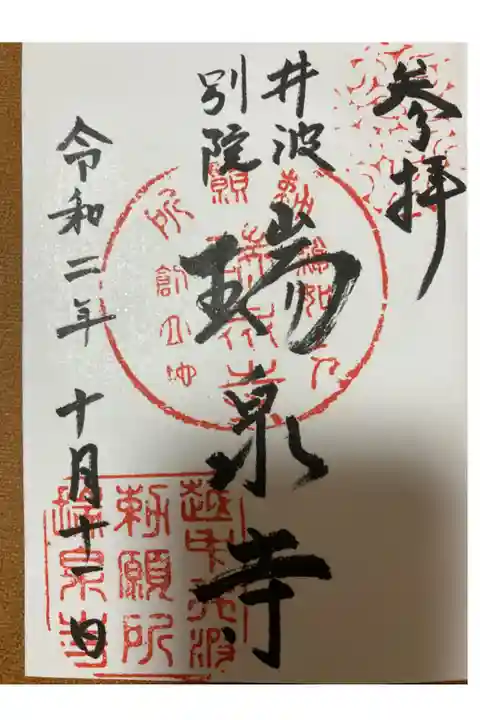 参拝
井波
別院
瑞泉寺
令和二年 十月十一日
勅願所
創
越中井波
勅願所
瑞泉寺